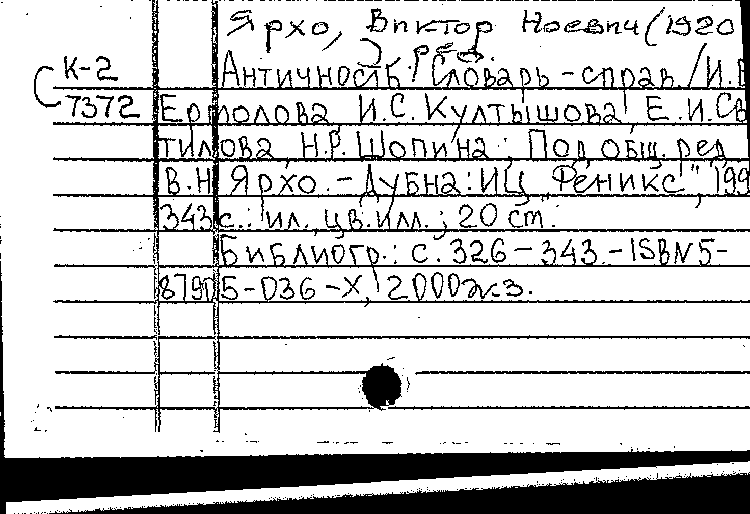 Ярхо, Виктор Ноевич (1920
), ред.
К-2
Античность: Словарь-справ. / И.Е
7372
Ермолова, И.С. Култышова, Е.И.Св
тилова, Н.Р. Шопина; Под общ. ред.
В.Н Ярхо. – Дубна: ИЦ „Феникс", 199
343с.: ил., цв.илл.; 20 ст.
Библиогр.: с. 326 – 343. – ISBN 5-
87905-036-Х, 2000экз.